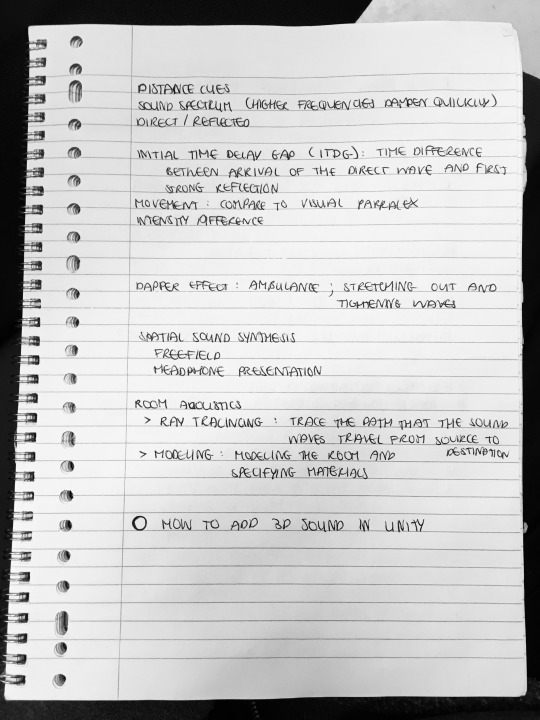 DISTANCE CUES
SOUND SPECTRUM (HIGHER FREQUENCIES DAMPEN QUICKLY)
DIRECT / REFLECTED
INITIAL TIME DELAY GAP (ITDG): TIME DIFFERENCE
BETWEEN ARRIVAL OF THE DIRECT WAVE AND FIRST
STRONG REFLECTION
MOVEMENT: COMPARE TO VISUAL PARRALEX
INTENSITY DIFFERENCE
DAPPER EFFECT: AMBULANCE; STRETCHING OUT AND
TIGHTENING WAVES
SPATIAL SOUND SYNTHESIS
FREEFIELD
HEADPHONE PRESENTATION
ROOM ACOUSTICS
> RAY TRACINCING: TRACE THE PATH THAT THE SOUND
WAVES TRAVEL FROM SOURCE TO
DESTINATION
> MODELING: MODELING THE ROOM AND
SPECIFYING MATERIALS
O HOW TO ADD 3D SOUND IN UNITY